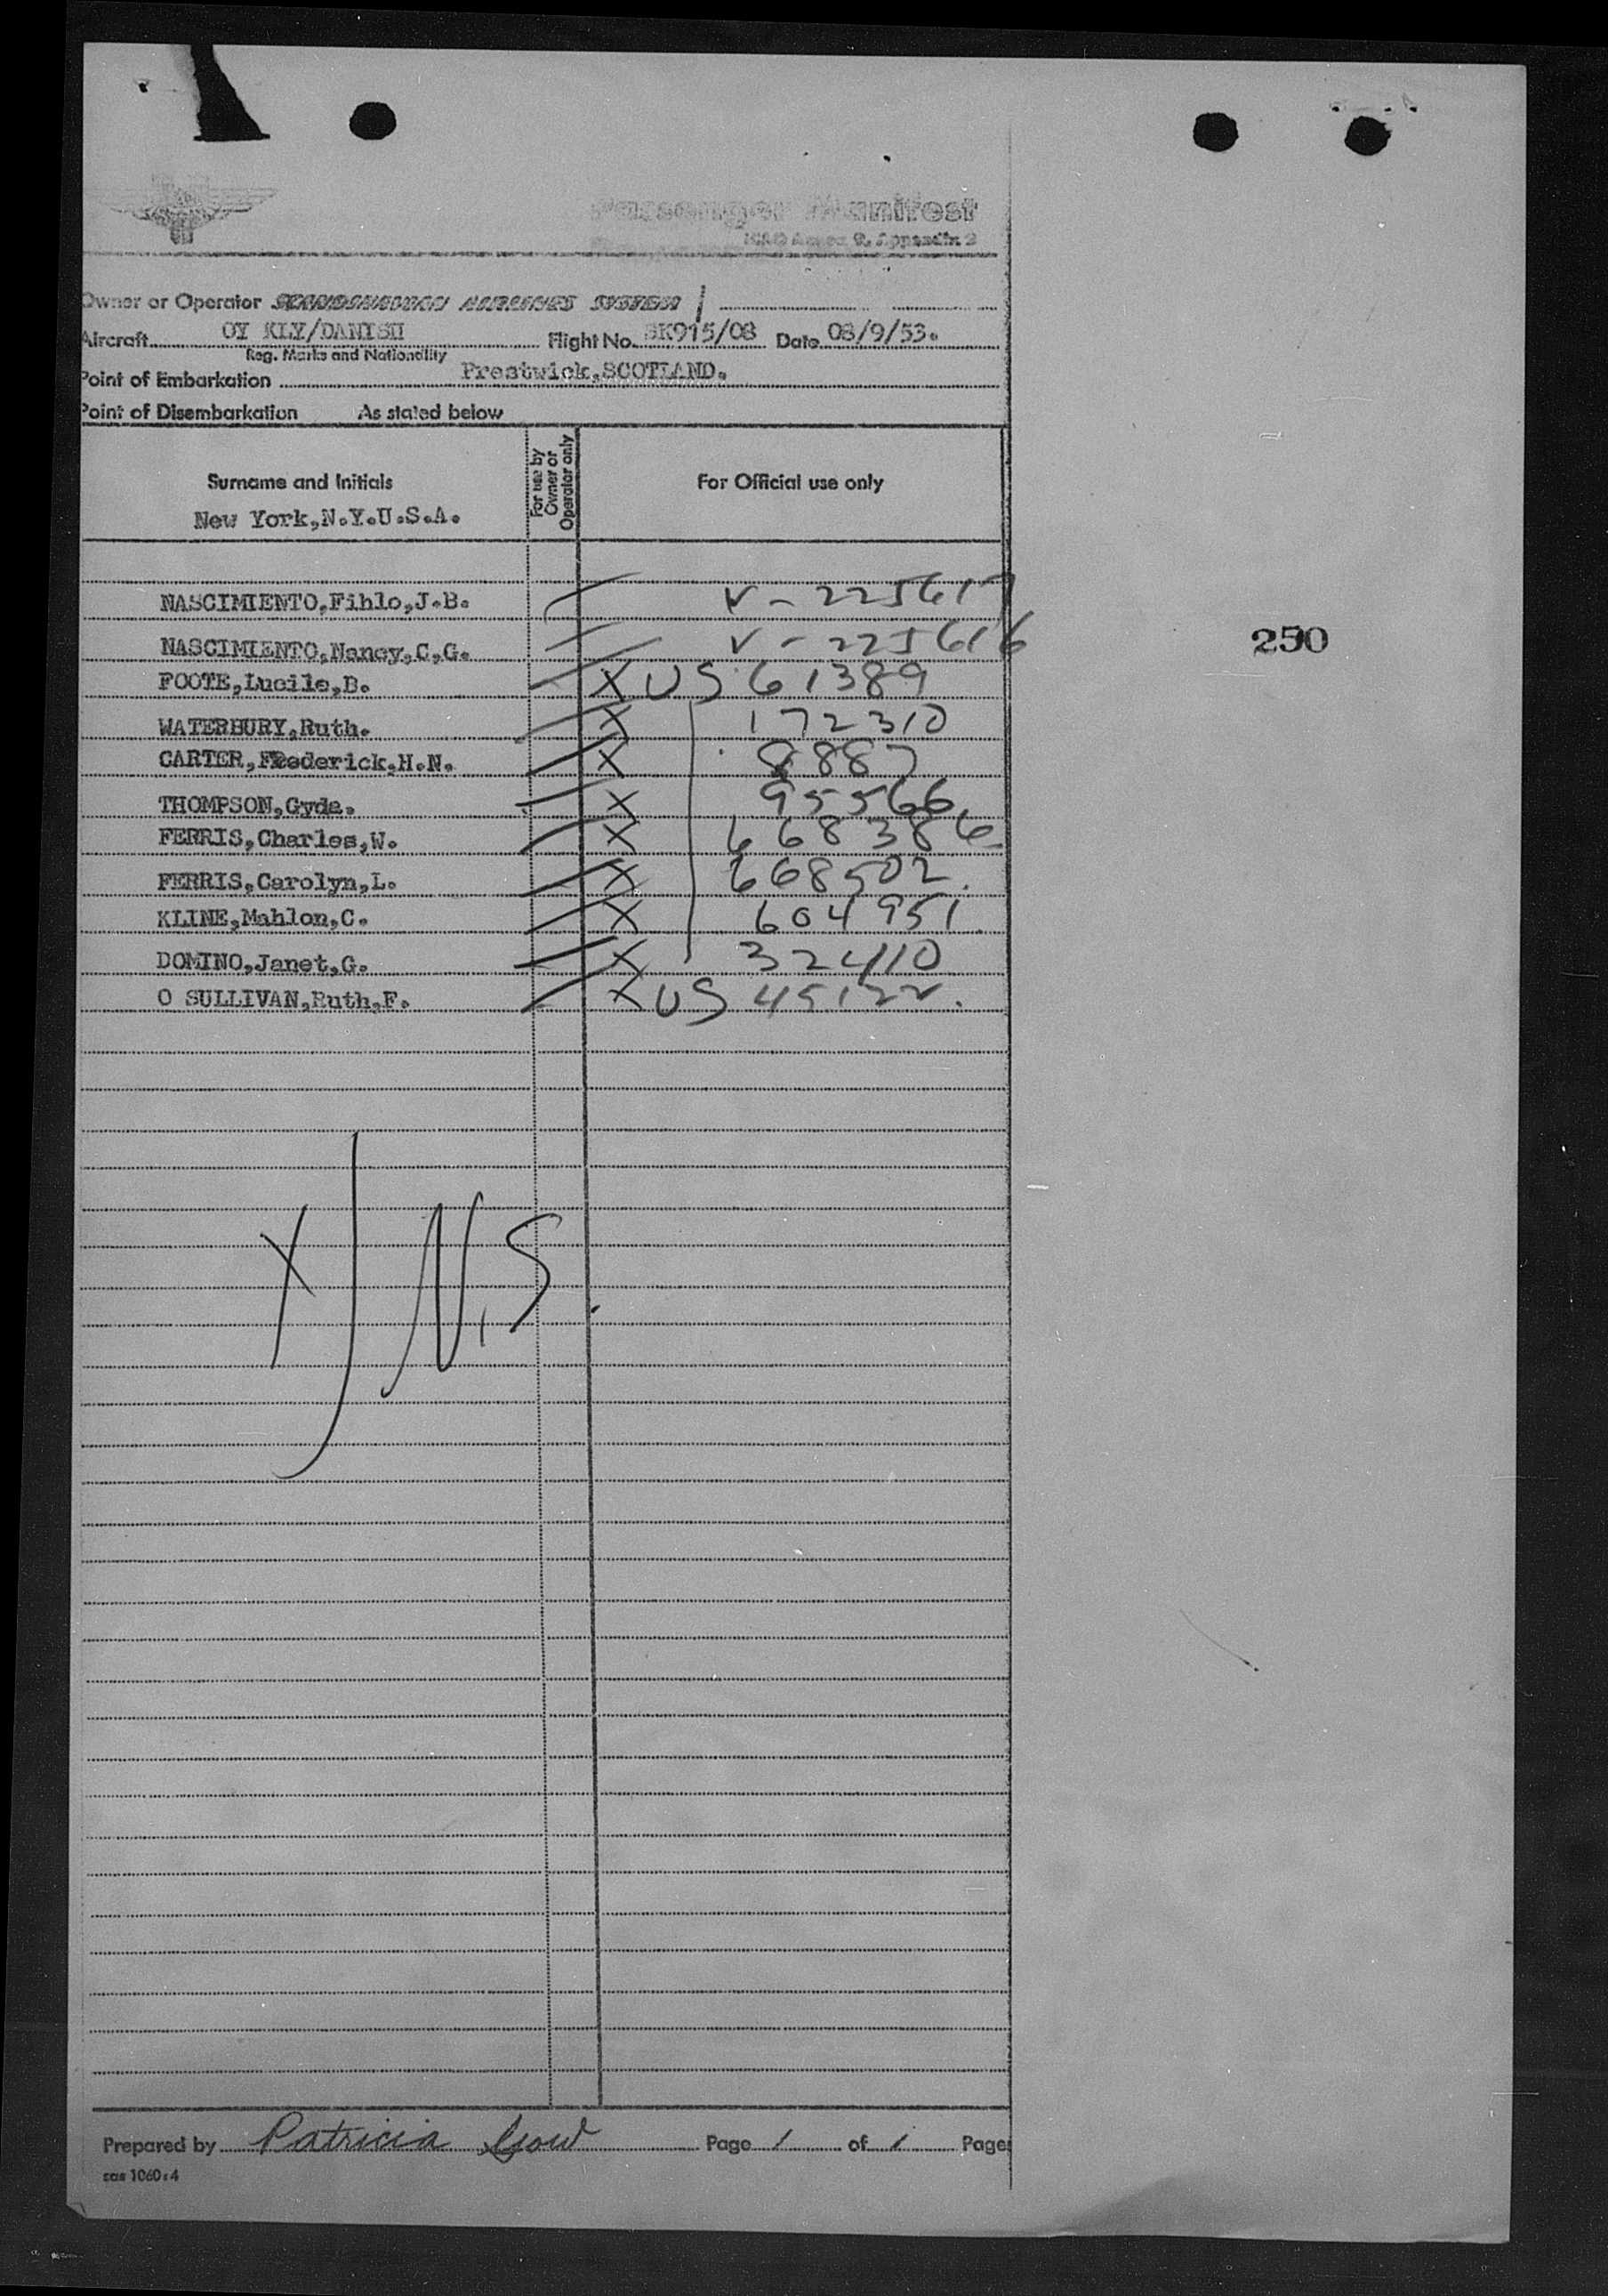 Passenger Manifest
ICAO Annex 9, Appendix 2
Owner or Operator SCANDINAVIAN AIRLINES SYSTEM
Aircraft OY KLY/DANISH Flight No. SK915/08 Date 08/9/53.
Reg. Marks and Nationality
Point of Embarkation Prestwick,SCOTLAND.
Point of Disembarkation As stated below
Surname and Initials For use by Owner or Operator only For Official use only
New York,N.Y.U.S.A.
NASCIMIENTO,Fihlo,J.B. V-225617
NASCIMIENTO,Nancy,C,G. V-225616
250
FOOTE,Lucile,B. X US 61389
WATERBURY,Ruth. X 172310
CARTER,Frederick,H.N. X 8887
THOMPSON,Gyda. X 95566
FERRIS,Charles,W. X 668386
FERRIS,Carolyn,L. X 668502.
KLINE,Mahlon,C. X 604951.
DOMINO,Janet,G. X 322410
O SULLIVAN,Ruth,F. X US 45122.
X J N.S.
Prepared by Patricia Gow Page 1 of 1 Page
sas 1060:4